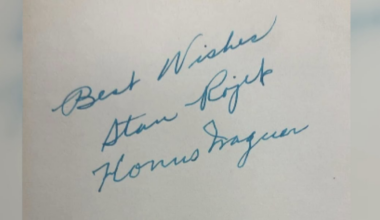 Best Wishes
Stan Rojek
Honus Wagner